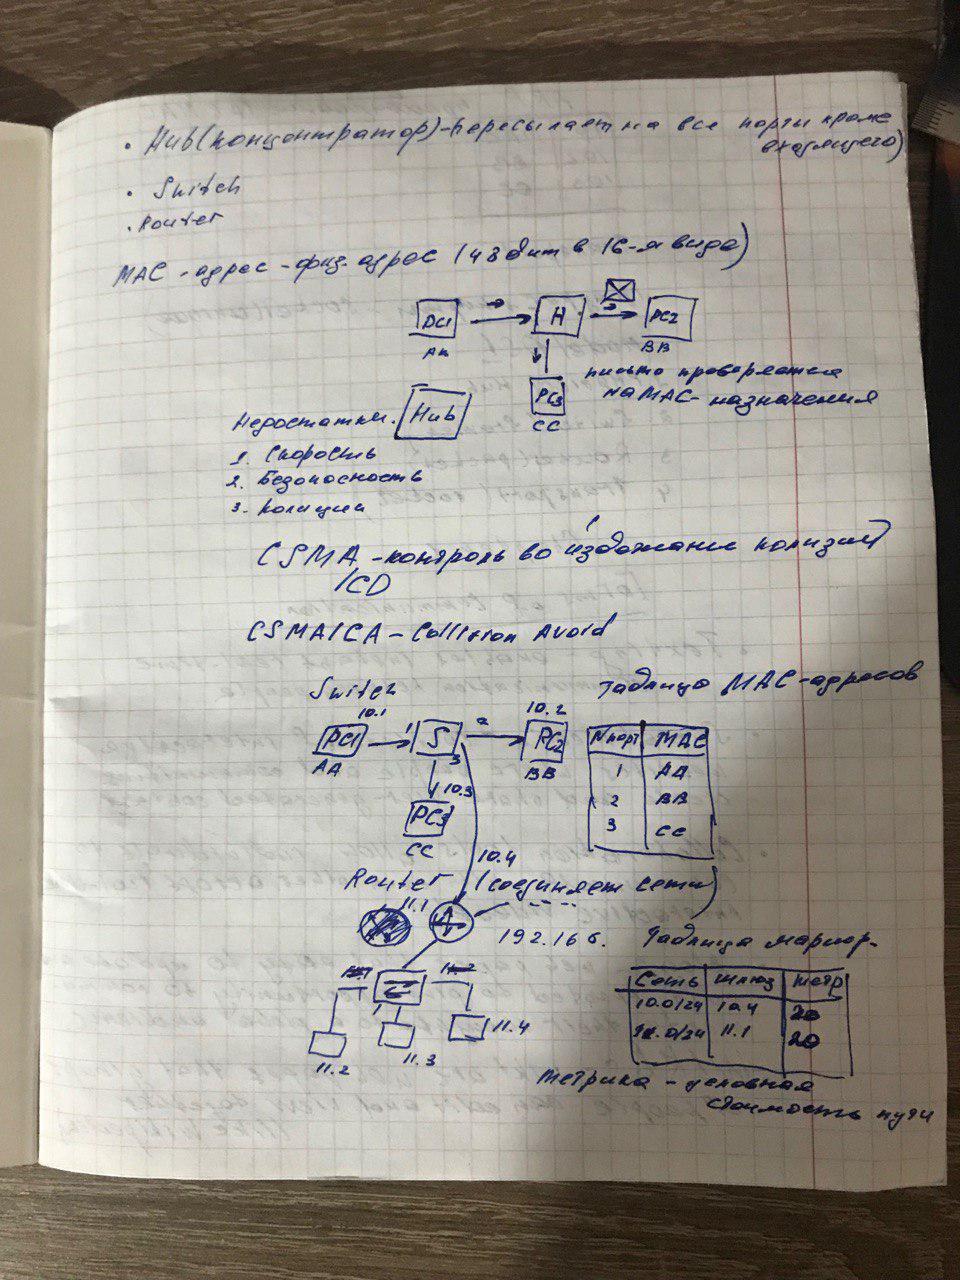 • Hub(концентратор)-пересылает на все порты кроме
входящего)
• Switch
• Router
MAC - адрес - физ. адрес (48 бит в 16-м виде)
PC1 → H → PC2
AA BB
PC3
CC
письмо проверяется
на MAC- назначения
Недостатки. Hub
1. Скорость
2. Безопасность
3. Колизии
CSMA - контроль во избежание колизий
/CD
CSMA/CA - Collision Avoid
Switch
Таблица MAC-адресов
10.1 10.2
PC1 1 S 2 PC2
AA 3 BB
10.3
PC3
CC
N порт MAC
1 AA
2 BB
3 CC
10.4
Router (соединяет сети)
11.1
192.168.
Таблица маршр.
Сеть шлюз метр
10.0/24 10.4 20
11.0/24 11.1 20
11.2
11.3
11.4
Метрика - условная
стоимость пути